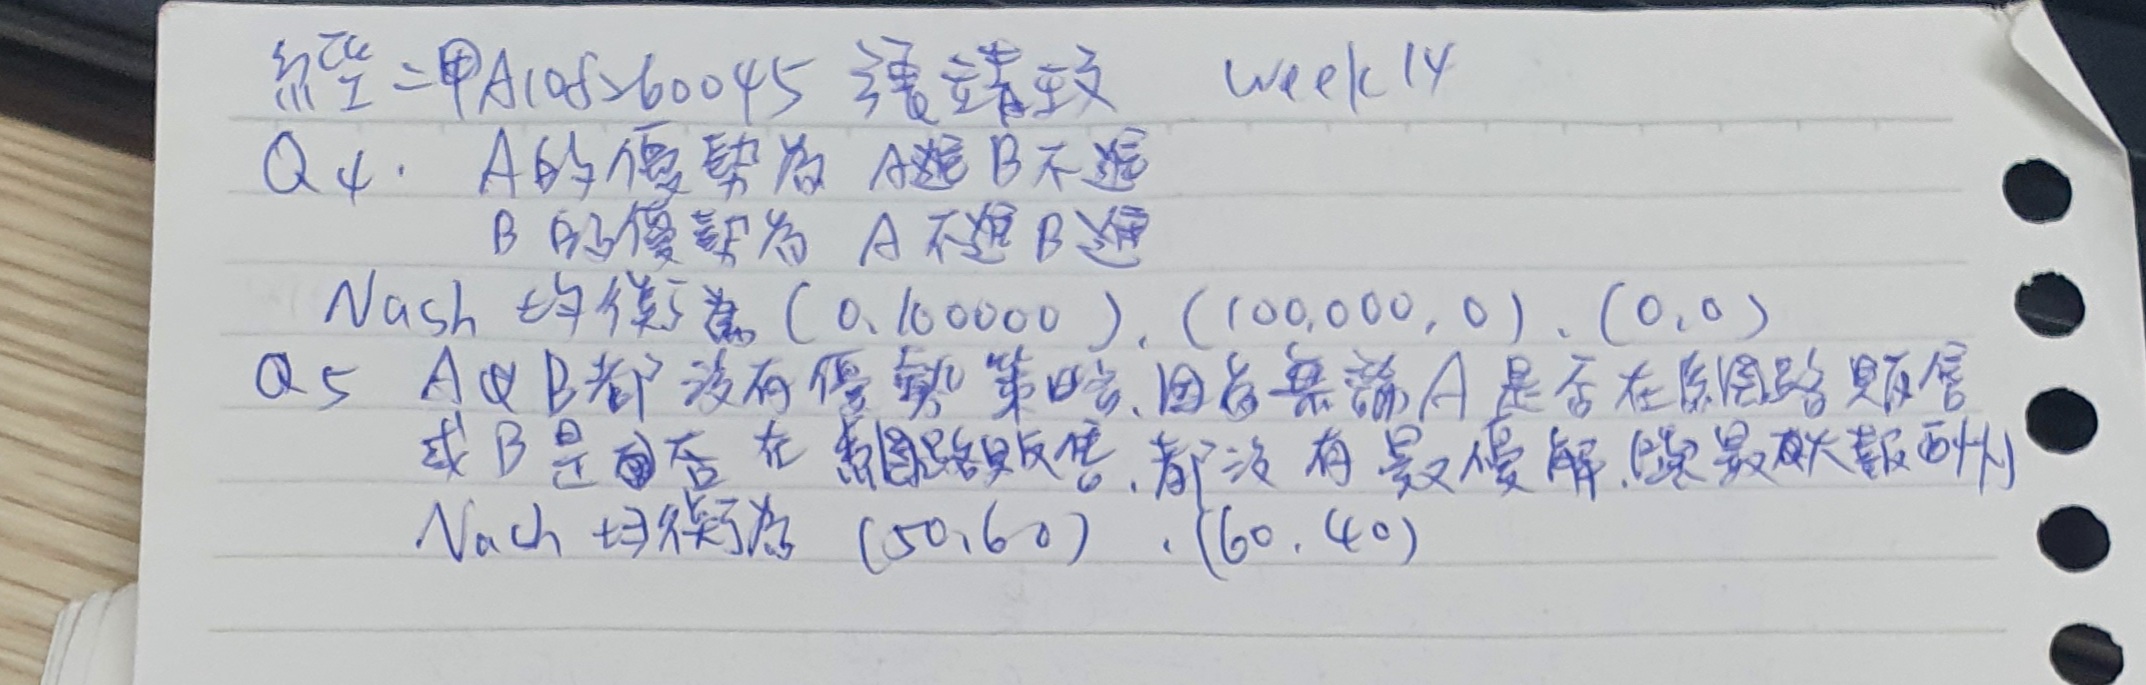 經二甲A108260045 張靖玟 week14
Q4. A的優勢為 A選B不選
B的優勢為 A不選B選
Nash 均衡為(0、100000)、(100,000,0)、(0,0)
Q5 A&B都沒有優勢策略、因為無論A是否在網路販售
或B是否在網路販售、都沒有最優解、最大報酬
Nash 均衡為 (50、60)、(60、40)